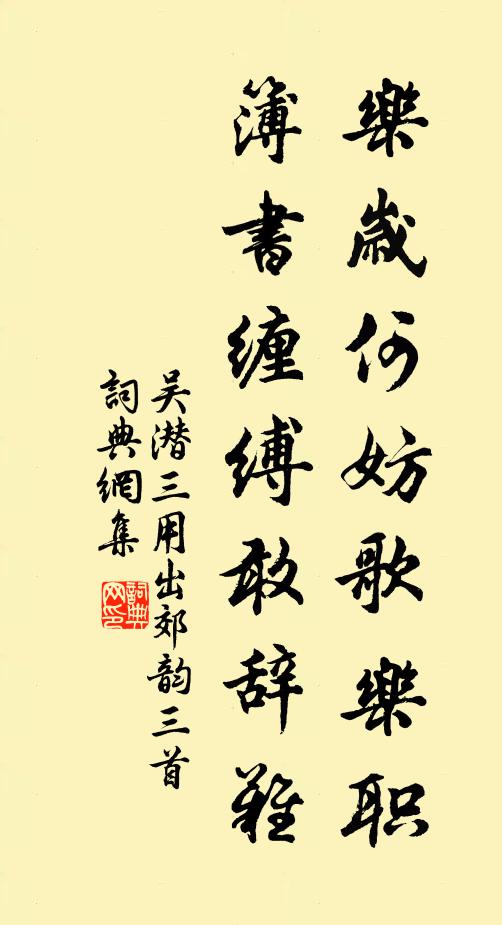 樂歲何妨歌樂职
簿書纏缚敢辞難
吴潛三用出郊韵三首
詞典網集
詞典
网印